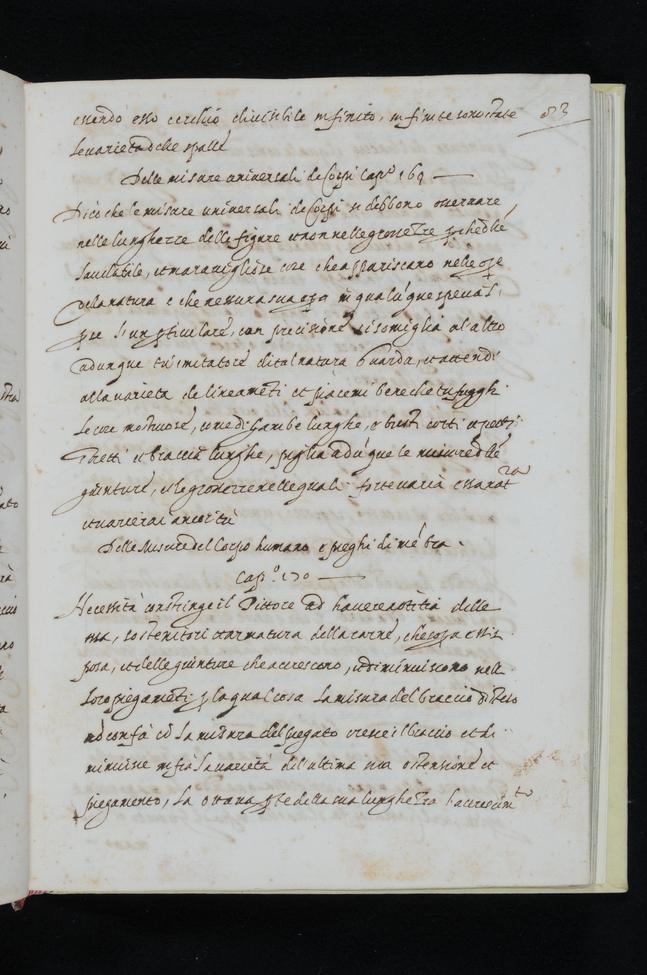 essendo esso cerchio divisibile infinito, infinite sono state
83
le varietà delle spalle
Delle misure universali de Corpi Cap.º 169
Dico che le misure universali de Corpi si debbono osservare
nelle lunghezze delle figure et non nelle grossezze, perche delle
laudabile, et maravigliose cose che appariscano nelle ope
della natura è che nessuna sua opa in qualunque spetia s'
per un particulare, con precisione si somiglia al altro
adunque tu imitatore di tal natura guarda, et attendi
alla varietà de lineameti et piacemi bene che tu fugghi
le cose mostruose, come di gambe lunghe, e busti corti et petti
stretti et braccia lunghe, piglia aduque le misure delle
giunture, et le grossezze nelle quali forte varia essa natura
et varierai ancor tu
Delle Misure del Corpo humano e pieghi di mebra.
Cap.º 170
Necessità constringe il Pittore ad havere notitia delle
ossa, sostenitori et armatura della carne, che sopa essi si
posa, et delle giunture che accrescono, et diminuiscono nelli
loro piegameti p la qual cosa la misura del braccio disteso
nō confà cō la misura del piegato cresce il braccio et di-
minuisce infra la varietà del ultima sua estensione et
piegamento, la ottava pte della sua lunghezza l'accrescim.to